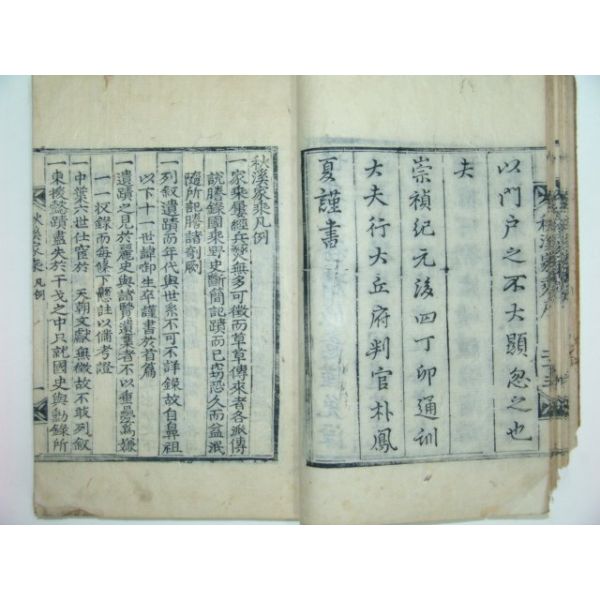 以門戶之不大顯忽之也
夫
崇禎紀元後四丁卯通訓
大夫行大丘府判官朴鳳
夏謹書
秋溪家乘凡例
一家乘屢經兵燹無多可徵而草草傳來者各派傳
說謄錄國乘野史斷簡記蹟而已竊恐久而益泯
隨所記謄諸剞劂
一列叙遺蹟而年代與世系不可不詳錄故自鼻祖
以下十一世諱卸生卒謹書於首篇
一遺蹟之見於麗史與諸賢遺藁者不以重疊爲嫌
一一收錄而每條下懸註以備考證
一中葉六世仕宦於天朝文獻無徵故不敢列叙
一東援懿蹟盡失於干戈之中只就國史與勳錄所
秋溪家乘 凡例 一